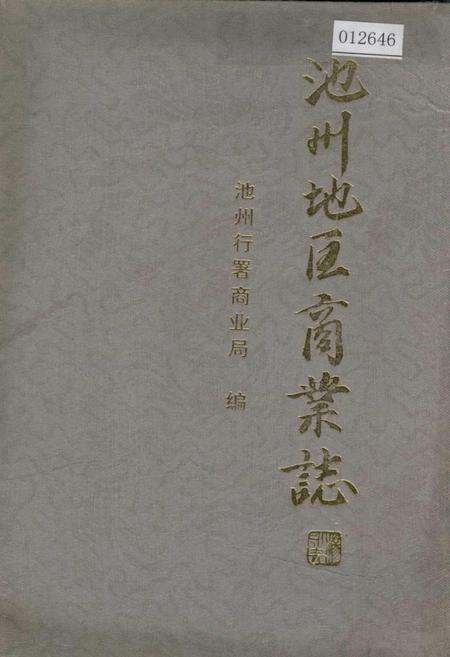 012646
池州地区商業誌
池州行署商业局 编